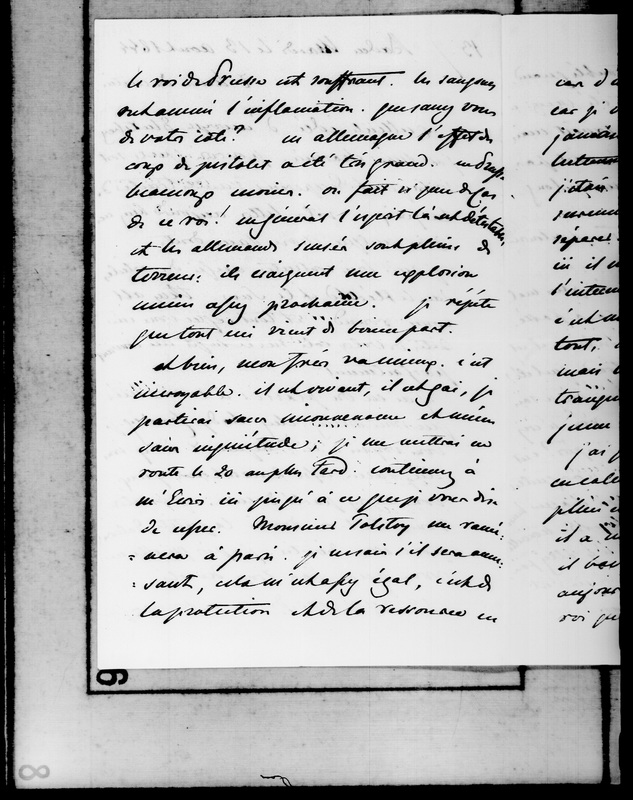 le roi de Prusse est souffrant. les sangsues
ont amené l'inflamation. que savez vous
de votre coté? en allemagne l'effet du
coup de pistolet a été très grand. en Prusse
beaucoup moins. on fait si peu de cas
de ce roi! en général l'esprit là est détestable
et les allemands sensés sont pleins de
terreur. ils craignent une explosion
même assez prochaine. je répète
que tout ceci vient de bonne part.
eh bien, mon frère va mieux. c'est
incroyable. il est vivant, il est gai, je
partirai sans inconvenance et même
sans inquiétude; je me mettrai en
route le 20 au plus tard. continuez à
m'Ecrire ici jusqu'à ce que je vous dise
de cesser. Monsieur Tolstoy me ramè-
=nera à paris. je ne sais s'il sera amu-
=sant, cela m'est assez égal, c'est de
la protection et de la ressource en
car d
car je
jamais
j'étais
l'inter
c'est
tout,
mais
tranqu
j'ai
plein
il a
il
aujour
roi que
9
8